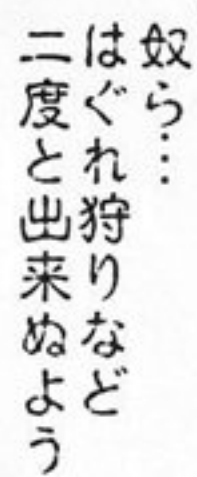 奴ら…
はぐれ狩りなど
二度と出来ぬよう